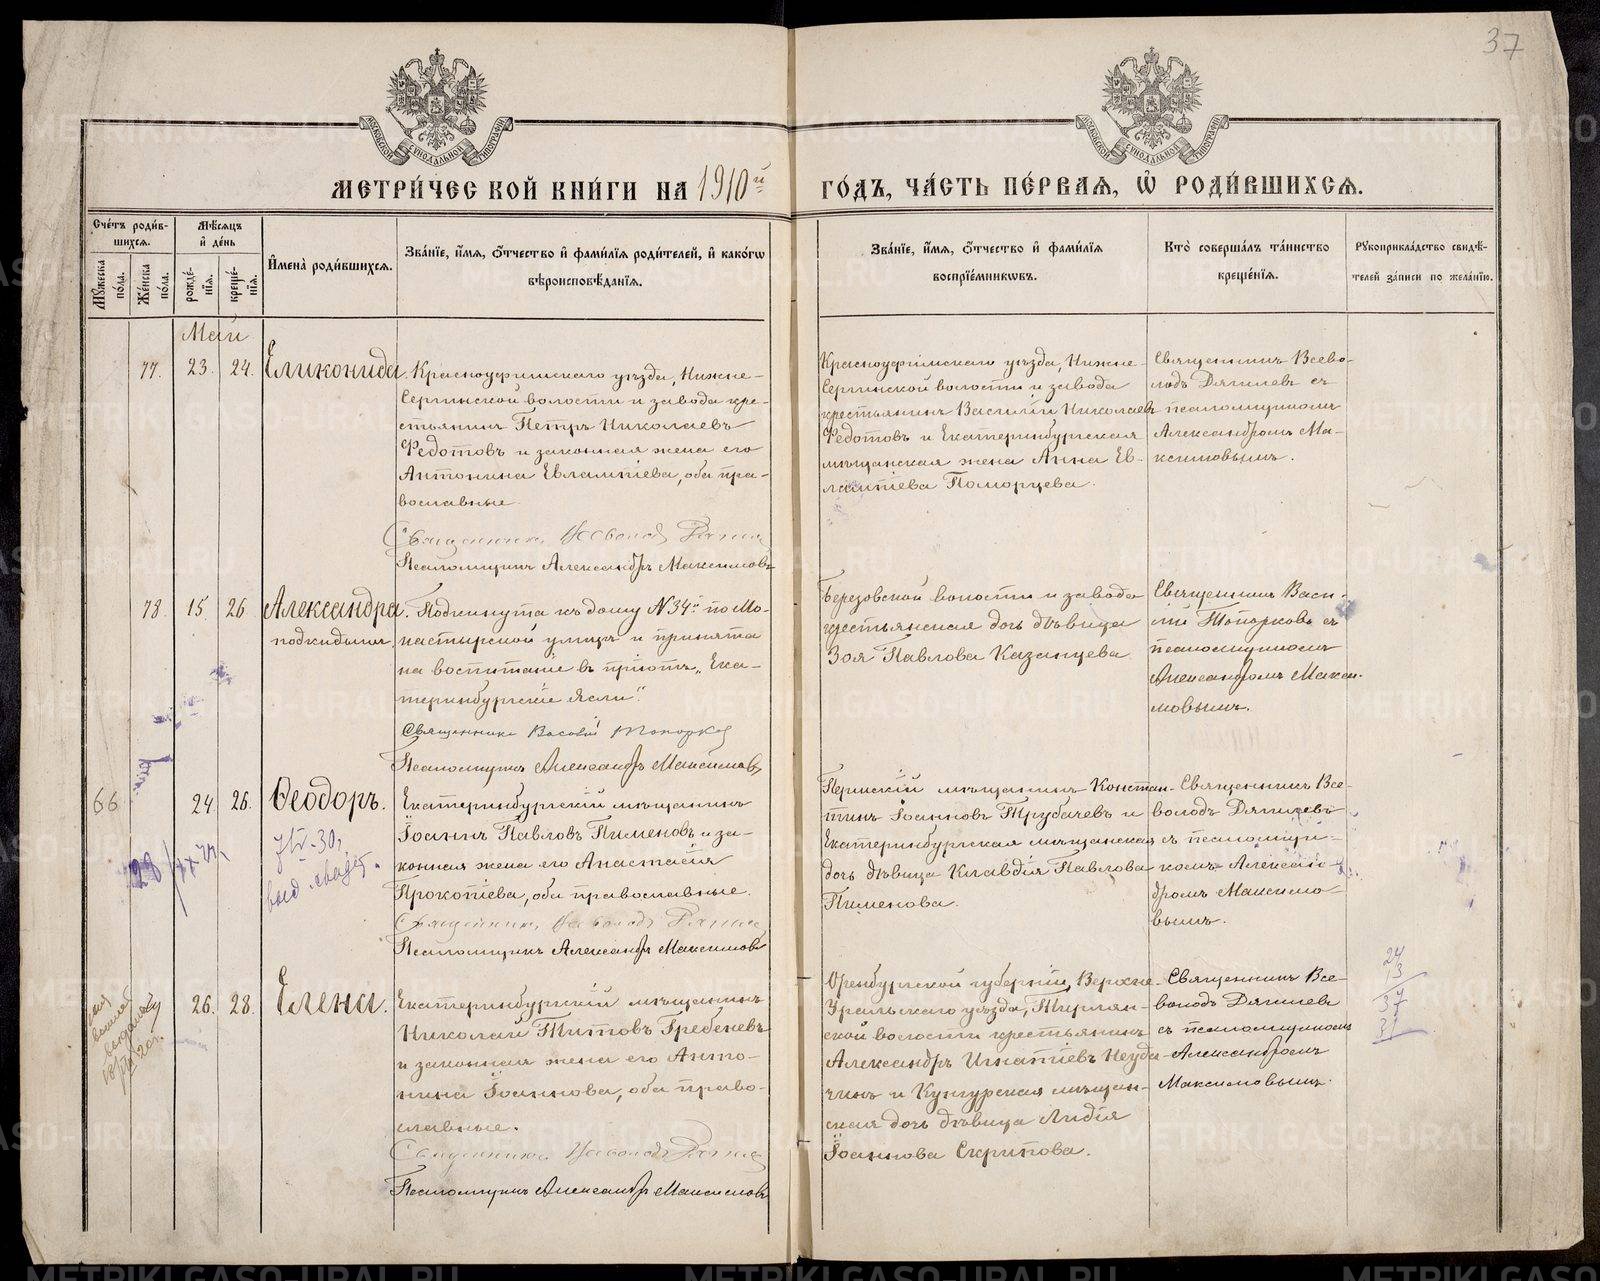 37
МОСКОВСКОЙ СѴНОДАЛЬНОЙ ТИПОГРАФІИ
МОСКОВСКОЙ СѴНОДАЛЬНОЙ ТИПОГРАФІИ
МЕТРИ́ЧЕСКОЙ КНИ́ГИ НА 1910й ГО́ДЪ, ЧА́СТЬ ПЕ́РВАѦ, Ѡ҆ РОДИ́ВШИХСѦ.
Сче́тъ роди́в-
шихсѧ.
Мѣ́сѧцъ
и҆ де́нь
Мꙋ́жеска по́ла.
Же́нска по́ла.
рожде́-
нїѧ.
креще́-
нїѧ.
И҆мена̀ роди́вшихсѧ.
Зва́нїе, и҆́мѧ, ѻ҆́тчество и҆ фами́лїѧ роди́телей, и҆ како́гѡ
вѣроисповѣ́данїѧ.
Зва́нїе, и҆́мѧ, ѻ҆́тчество и҆ фами́лїѧ
воспрїе́мникѡвъ.
Кто̀ соверша́лъ та́инство
креще́нїѧ.
Рꙋкоприкла́дство свидѣ́-
телей за́писи по жела́нїю.
Май
77. 23. 24. Еликонида
Красноуфимскаго уѣзда, Нижне-
Сергинской волости и завода кре-
стьянинъ Петръ Николаевъ
Федотовъ и законная жена его
Антонина Евлампіева, оба пра-
вославные.
Священникъ Всеволодъ
Псаломщикъ Александръ Максимовъ
Красноуфимскаго уѣзда, Нижне-
Сергинской волости и завода
крестьянинъ Василій Николаевъ
Федотовъ и Екатеринбургская
мѣщанская жена Анна Ев-
лампіева Поморцева.
Священникъ Всево-
лодъ Дягилевъ съ
псаломщикомъ
Александромъ Ма-
ксимовымъ.
78. 15 26 Александра.
подкидышъ
Подкинута къ дому N 34й по Мо-
настырской улицѣ и принята
на воспитаніе въ пріютъ „Ека-
теринбургскіе Ясли".
Священникъ Василій Топорковъ
Псаломщикъ Александръ Максимовъ
Березовской волости и завода
крестьянская дочь дѣвица
Зоя Павлова Казанцева
Священникъ Васи-
лій Топорковъ съ
псаломщикомъ
Александромъ Макси-
мовымъ.
66 24. 26. Ѳеодоръ.
выд.
Екатеринбургскій мѣщанинъ
Іоаннъ Павловъ Пименовъ и за-
конная жена его Анастасія
Прокопіева, оба православные.
Священникъ Всеволодъ
Псаломщикъ Александръ Максимовъ
Пермскій мѣщанинъ Констан-
тинъ Іоанновъ Трубачевъ и
Екатеринбургская мѣщанская
дочь дѣвица Клавдія Павлова
Пименова.
Священникъ Все-
володъ Дягилевъ
съ псаломщи-
комъ Алексан-
дромъ Максимо-
вымъ.
26. 28. Елена.
Екатеринбургскій мѣщанинъ
Николай Титовъ Гребеневъ
и законная жена его Анто-
нина Іоаннова, оба право-
славные.
Священникъ Всеволодъ
Псаломщикъ Александръ Максимовъ
Оренбургской губерніи, Верхне-
Уральскаго уѣзда, Тирлян-
ской волости крестьянинъ
Александръ Игнатіевъ Неуда-
чинъ и Кунгурская мѣщан-
ская дочь дѣвица Лидія
Іоаннова Скрипова.
Священникъ Все-
володъ Дягилевъ
съ псаломщикомъ
Александромъ
Максимовымъ.
24
13
37
37